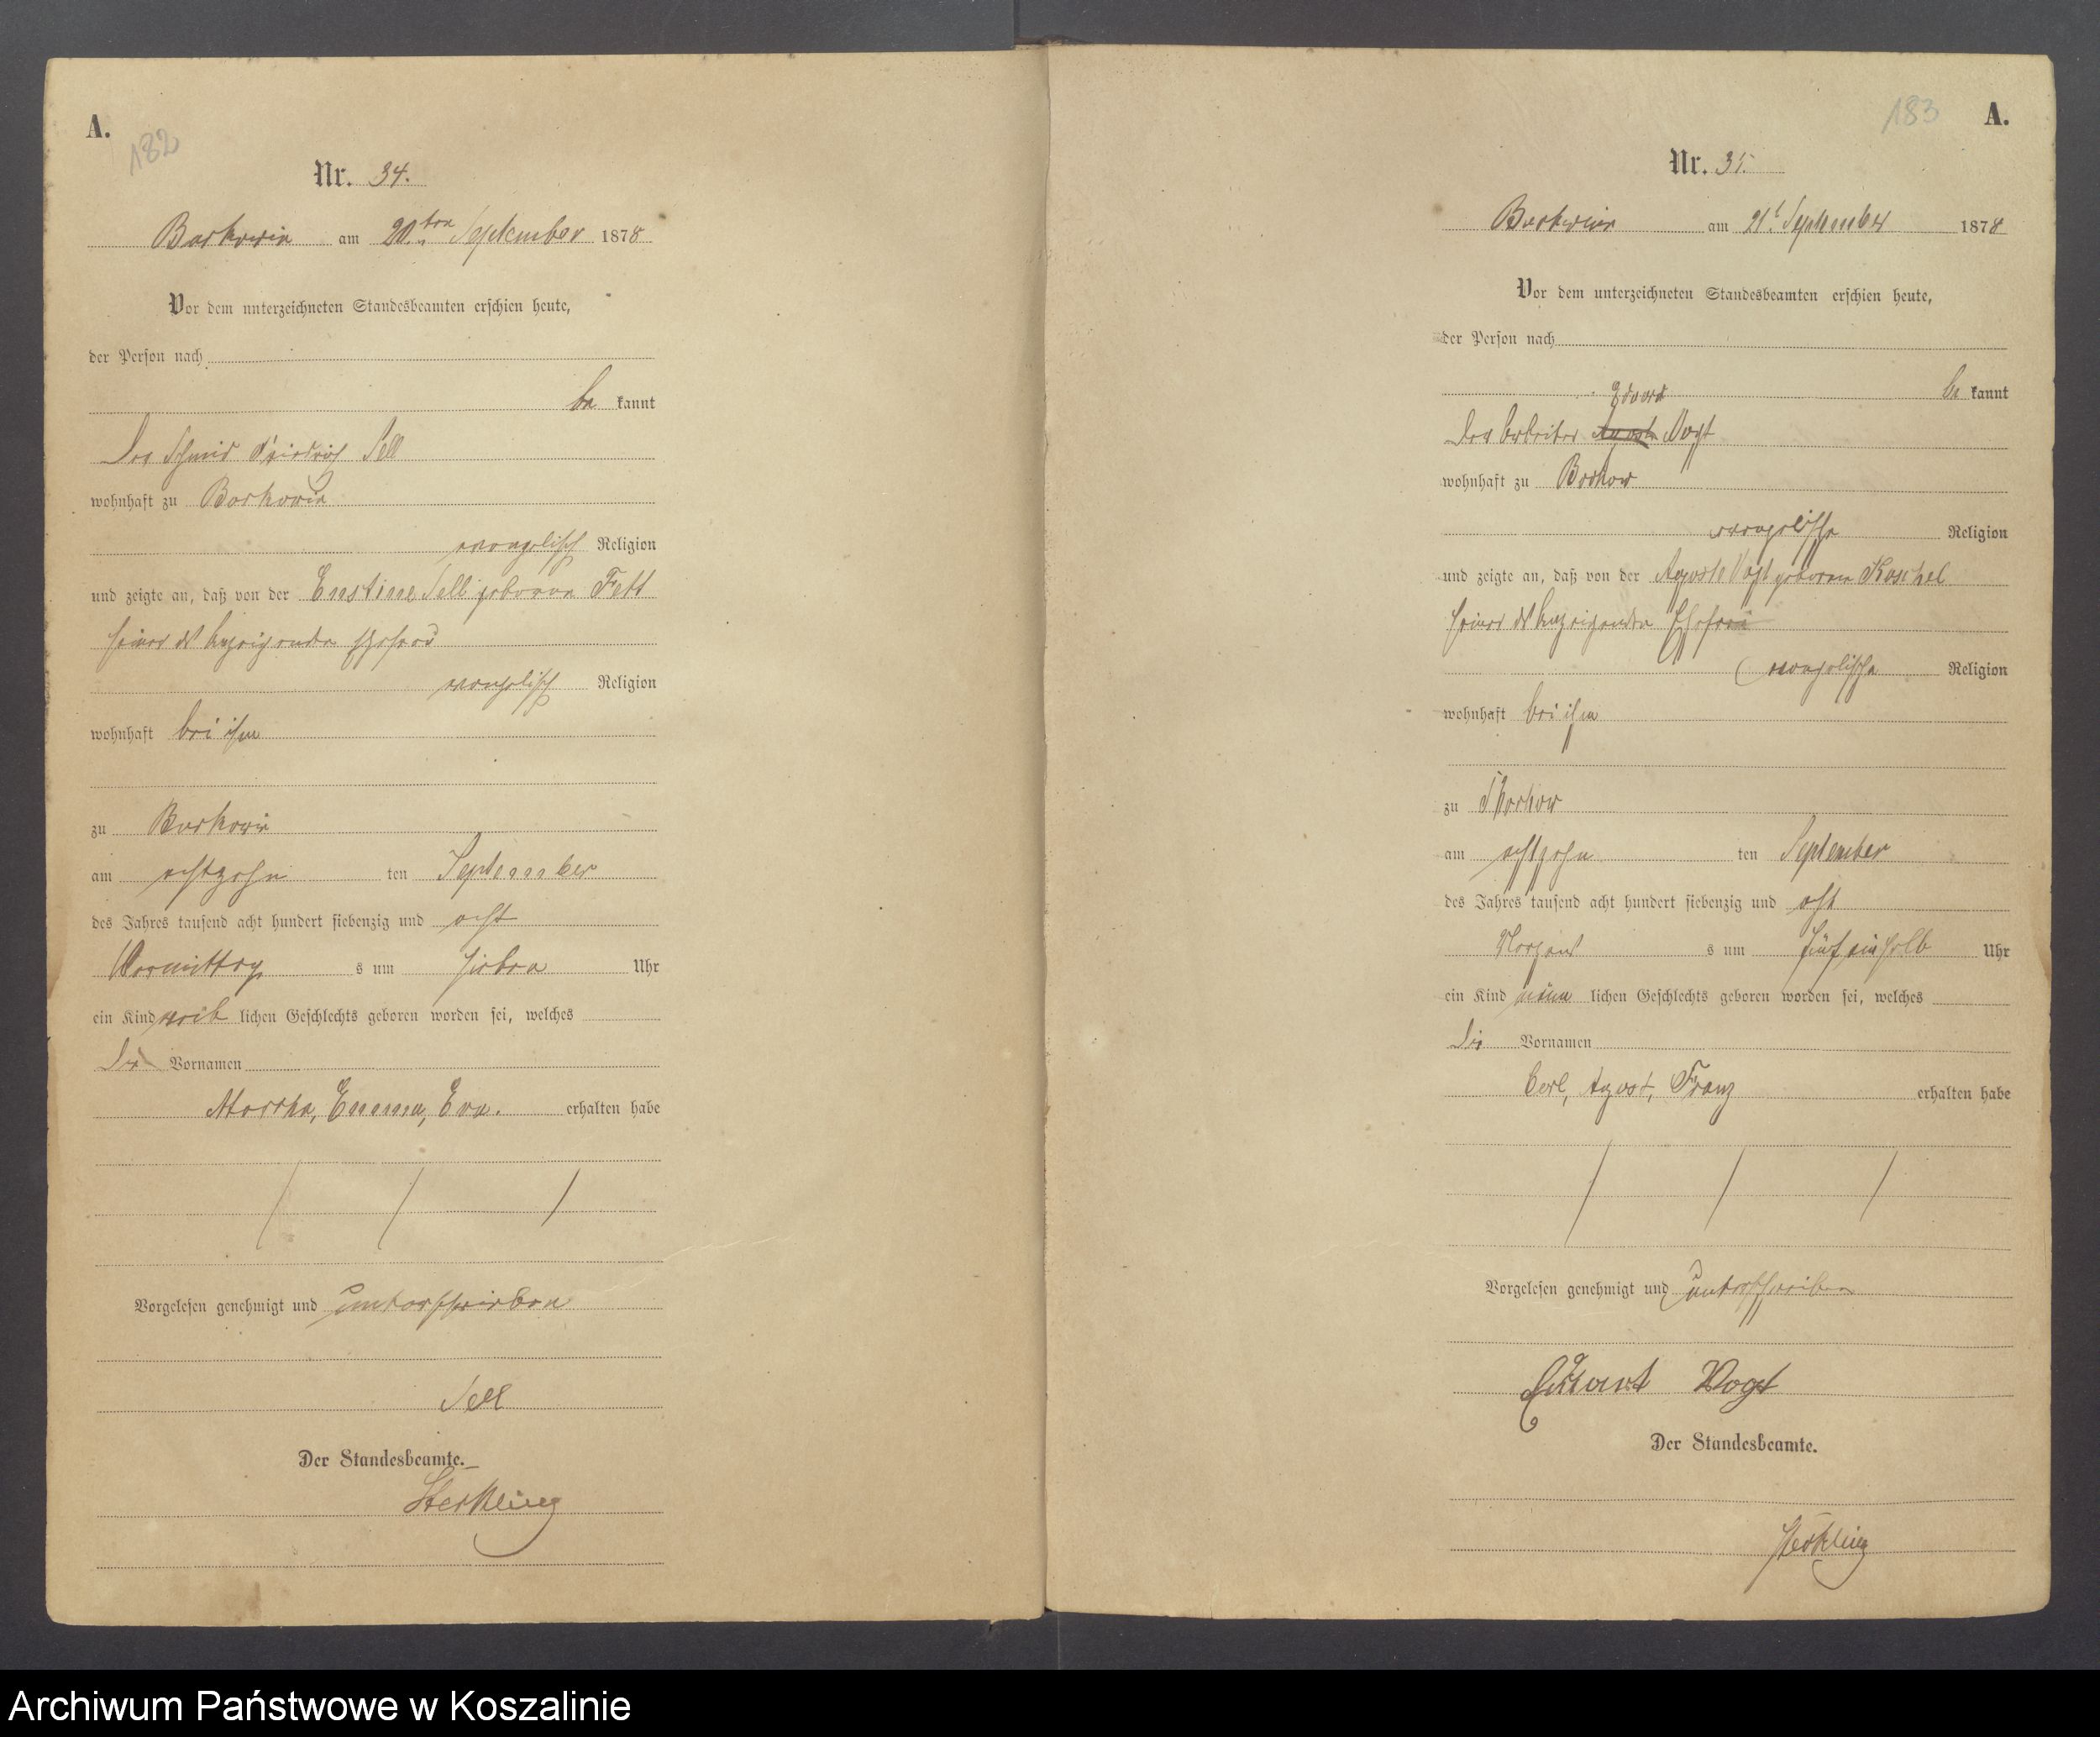 A.
182
Nr. 34.
Barkowin am 20ten September 1878
Vor dem unterzeichneten Standesbeamten erschien heute,
der Person nach
be kannt
Der Schmid Friedrich Sell
wohnhaft zu Barkowin
evangelisch Religion
und zeigte an, daß von der Ernstine Sell geborene Fett
seiner des Anzeigenden Ehefrau
evangelisch Religion
wohnhaft bei ihm
zu Barkowin
am achtzehn ten September
des Jahres tausend acht hundert siebenzig und acht
Vormittag s um sieben Uhr
ein Kind weib lichen Geschlechts geboren worden sei, welches
die Vornamen
Martha, Emma, Eva. erhalten habe
Vorgelesen genehmigt und unterschrieben
Sell
Der Standesbeamte.
Sterkling
183
A.
Nr. 35.
Barkowin am 21t September 1878
Vor dem unterzeichneten Standesbeamten erschien heute,
der Person nach
be kannt
Eduard
Der Arbeiter Vogt
wohnhaft zu Barkow
evangelische Religion
und zeigte an, daß von der Aguste Vogt geborene Koschel
seiner des Anzeigenden Ehefrau
evangelische Religion
wohnhaft bei ihm
zu Barkow
am achtzehn ten September
des Jahres tausend acht hundert siebenzig und acht
Morgen s um fünf ein halb Uhr
ein Kind männ lichen Geschlechts geboren worden sei, welches
die Vornamen
Carl, Agust, Franz erhalten habe
Vorgelesen genehmigt und unterschrieben
Eduart Vogt
Der Standesbeamte.
Sterkling
Archiwum Państwowe w Koszalinie